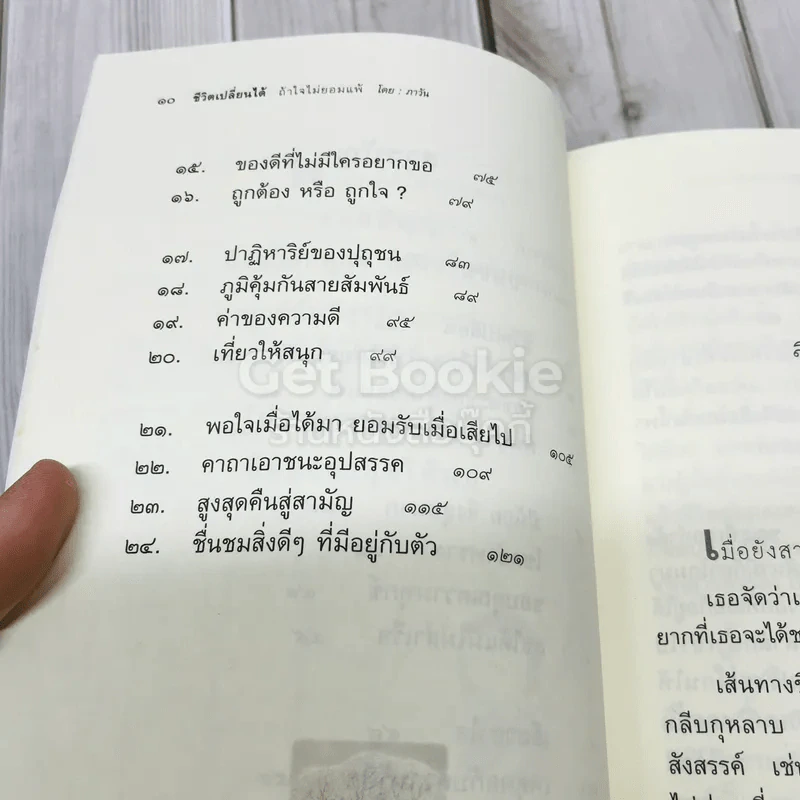 ๑๐ ชีวิตเปลี่ยนได้ ถ้าใจไม่ยอมแพ้ โดย : ภาวัน
๑๕. ของดีที่ไม่มีใครอยากขอ ๗๕
๑๖. ถูกต้อง หรือ ถูกใจ ? ๗๙
๑๗. ปาฏิหาริย์ของปุถุชน ๘๓
๑๘. ภูมิคุ้มกันสายสัมพันธ์ ๘๙
๑๙. ค่าของความดี ๙๕
๒๐. เที่ยวให้สนุก ๙๙
Get Bookie
ร้านหนังสือบุ๊คกี้
๒๑. พอใจเมื่อได้มา ยอมรับเมื่อเสียไป ๑๐๕
๒๒. คาถาเอาชนะอุปสรรค ๑๐๙
๒๓. สูงสุดคืนสู่สามัญ ๑๑๕
๒๔. ชื่นชมสิ่งดีๆ ที่มีอยู่กับตัว ๑๒๑
เมื่อยังสา
เธอจัดว่าเ
ยากที่เธอจะได้ช
เส้นทางชี
กลีบกุหลาบ
สังสรรค์ เช่น